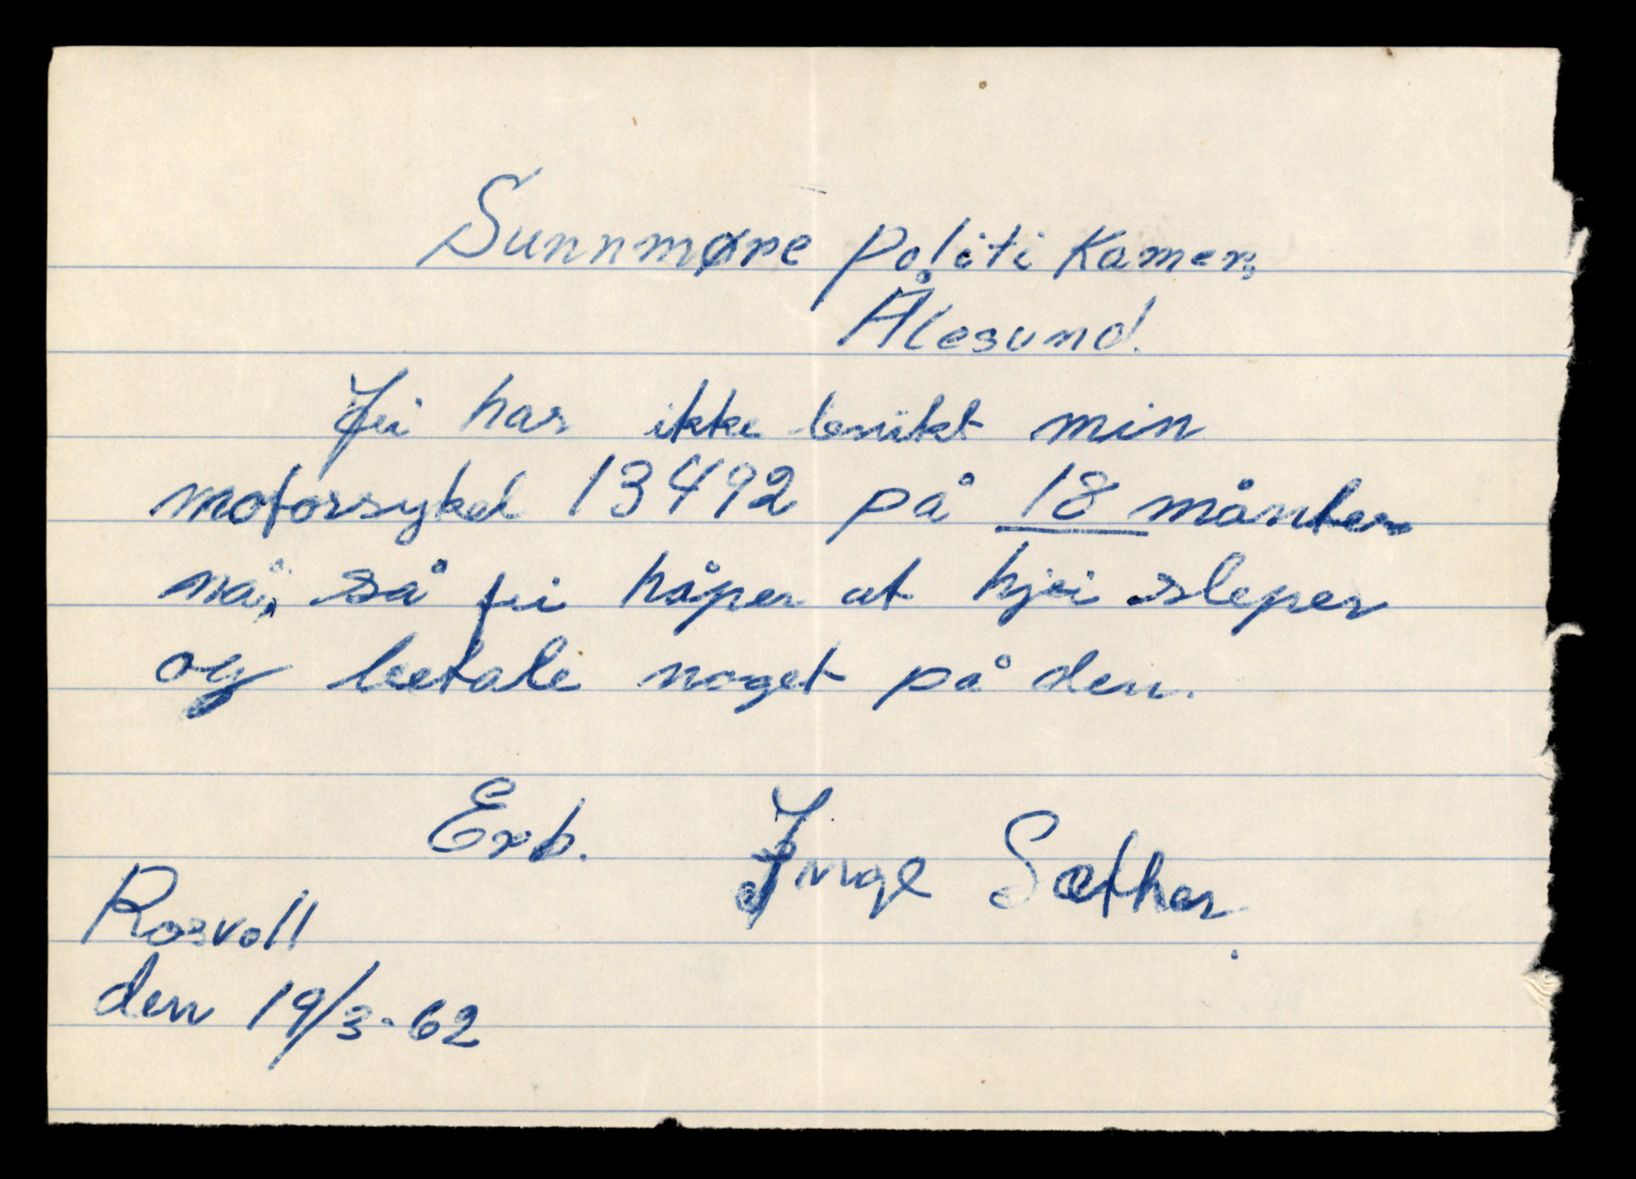 Sunnmøre politi Kamer,
Ålesund.
Jei har ikke brukt min
motorsykel 13492 på 18 månter
nå, så jei håper at hjei sleper
og betale noget på den.
Erb. Inge Sæther.
Rosvoll
den 19/3-62